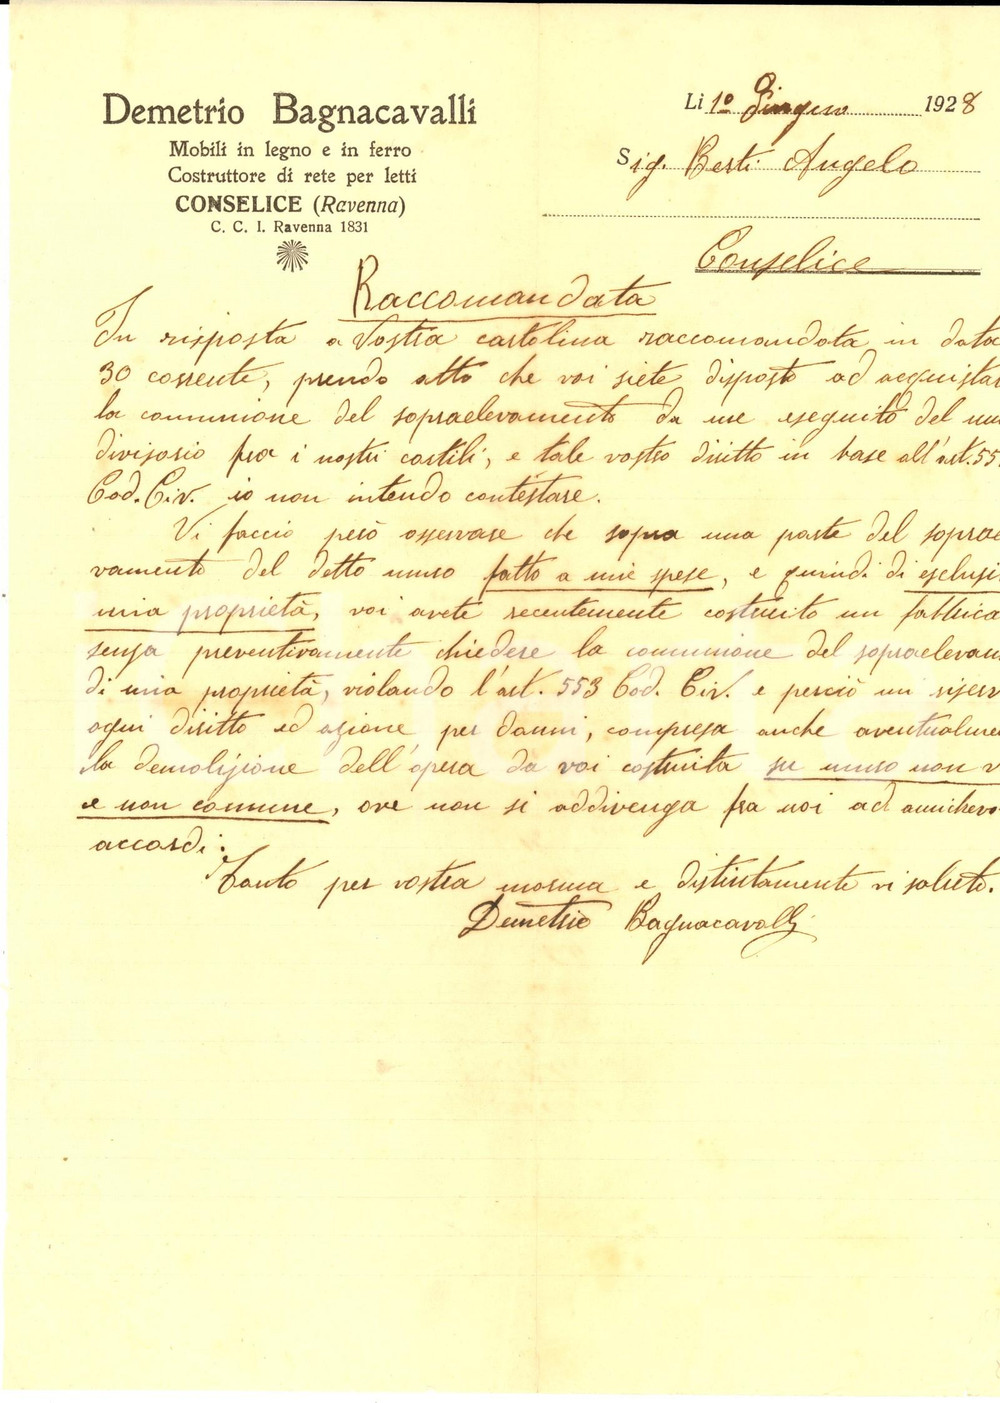 Demetrio Bagnacavalli
Mobili in legno e in ferro
Costruttore di rete per letti
CONSELICE (Ravenna)
C. C. I. Ravenna 1831
Li 1º Giugno 1928
Sig. Berti Angelo
Conselice
Raccomandata
In risposta a Vostra cartolina raccomandata in data
30 corrente, prendo atto che voi siete disposto ad acquistar
la comunione del sopraelevamento da me eseguito del mu
divisorio fra i nostri cortili, e tale vostro diritto in base all'art. 55
Cod. Civ. io non intendo contestare.
Vi faccio però osservare che sopra una parte del soprae
vamento del detto muro fatto a mie spese, e quindi di esclusi
mia proprietà, voi avete recentemente costruito un fabbrica
senza preventivamente chiedere la comunione del sopraelevam
di mia proprietà, violando l'art. 553 Cod. Civ. e perciò mi riserv
ogni diritto ed azione per danni, compresa anche aventualme
la demolizione dell'opera da voi costruita su muro non v
e non comune, ove non si addivenga fra noi ad amichevo
accordi.
Tanto per vostra norma e distintamente vi saluto.
Demetrio Bagnacavalli